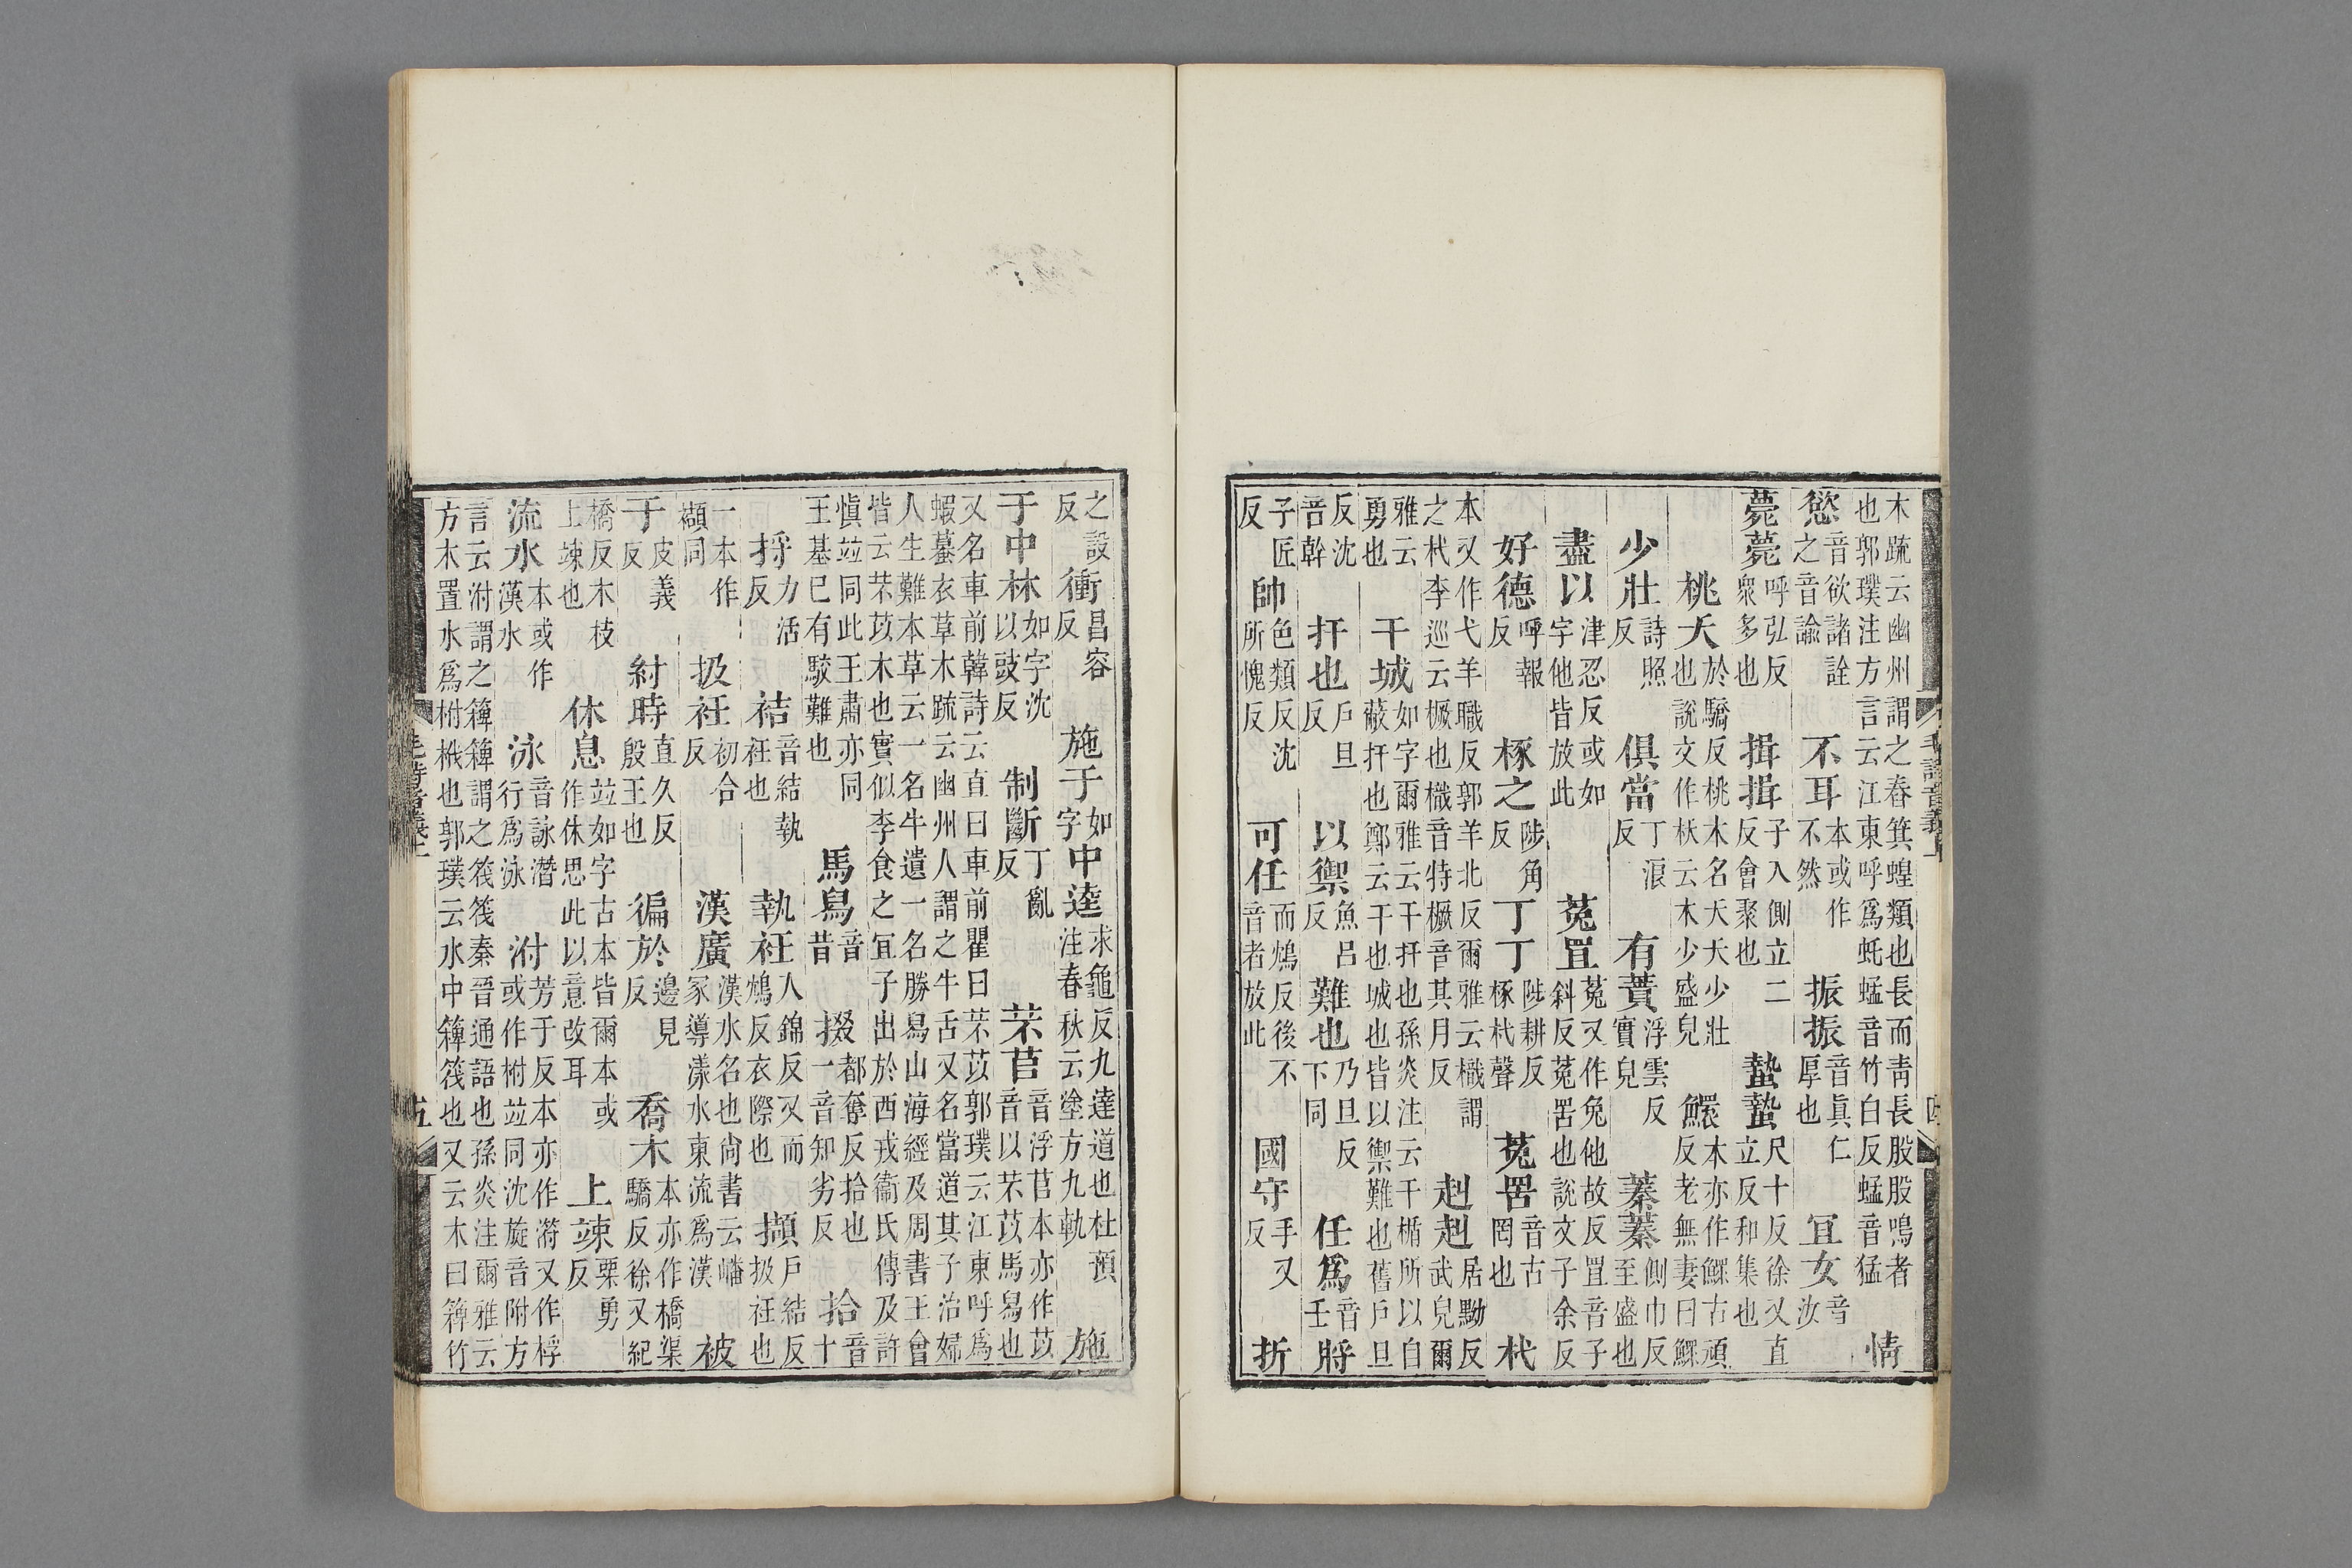 木疏云幽州謂之春箕蝗類也長而靑長股股鳴者也郭璞注方言云江東呼爲虴蜢音竹白反蜢音猛情
慾音欲諸詮之音諭不耳本或作不然振振音眞仁厚也宜女音汝
薨薨呼弘反衆多也揖揖子入側立二反會聚也蟄蟄尺十反徐又直立反和集也
桃夭於驕反桃木名夭夭少壯也說文作枖云木少盛皃鱞本亦作鰥古頑反老無妻曰鰥
少壯詩照反俱當丁浪反有蕡浮雲反實皃蓁蓁側巾反至盛也
盡以津忍反或如字他皆放此菟罝菟又作兔他故反罝音子斜反菟罟也說文子余反
好德呼報反椓之陟角反丁丁陟耕反椓杙聲菟罟音古罔也杙
本又作弋羊職反郭羊北反爾雅云樴謂之杙李巡云橛也樴音特橛音其月反赳赳居黝反武皃爾
雅云勇也干城如字爾雅云干扞也孫炎注云干楯所以自蔽扞也鄭云干也城也皆以禦難也舊戶旦
反沈音幹扞也戶旦反以禦魚呂反難也乃旦反下同任爲音壬將
子匠反帥色類反沈所愧反可任而鴆反後不音者放此國守手又反折
毛詩音義上 四
之設反衝昌容反施于如字中逵求龜反九達道也杜預注春秋云塗方九軌施
于中林如字沈以豉反制斷丁亂反芣苢音浮苢本亦作苡音以芣苡馬舄也
又名車前韓詩云直曰車前瞿曰芣苡郭璞云江東呼爲蝦蟇衣草木疏云幽州人謂之牛舌又名當道其子治婦
人生難本草云一名牛遺一名勝舄山海經及周書王會皆云芣苡木也實似李食之宜子出於西戎衞氏傳及許
愼竝同此王肅亦同王基已有駮難也馬舄音昔掇都奪反拾也一音知劣反拾音十
捋力活反袺音結執衽也執衽人錦反又而鴆反衣際也擷戶結反扱衽也
一本作襭同扱衽初合反漢廣漢水名也尙書云嶓冢導漾水東流爲漢被
于皮義反紂時直久反殷王也徧於邊見反喬木本亦作橋渠驕反徐又紀
橋反木枝上竦也休息竝如字古本皆爾本或作休思此以意改耳上竦粟勇反
流水本或作漢水泳音詠潛行爲泳泭芳于反本亦作㵗又作桴或作柎竝同沈旋音附方
言云泭謂之䉬䉬謂之筏筏秦晉通語也孫炎注爾雅云方木置水爲柎栰也郭璞云水中䉬筏也又云木曰䉬竹
毛詩音義上 五